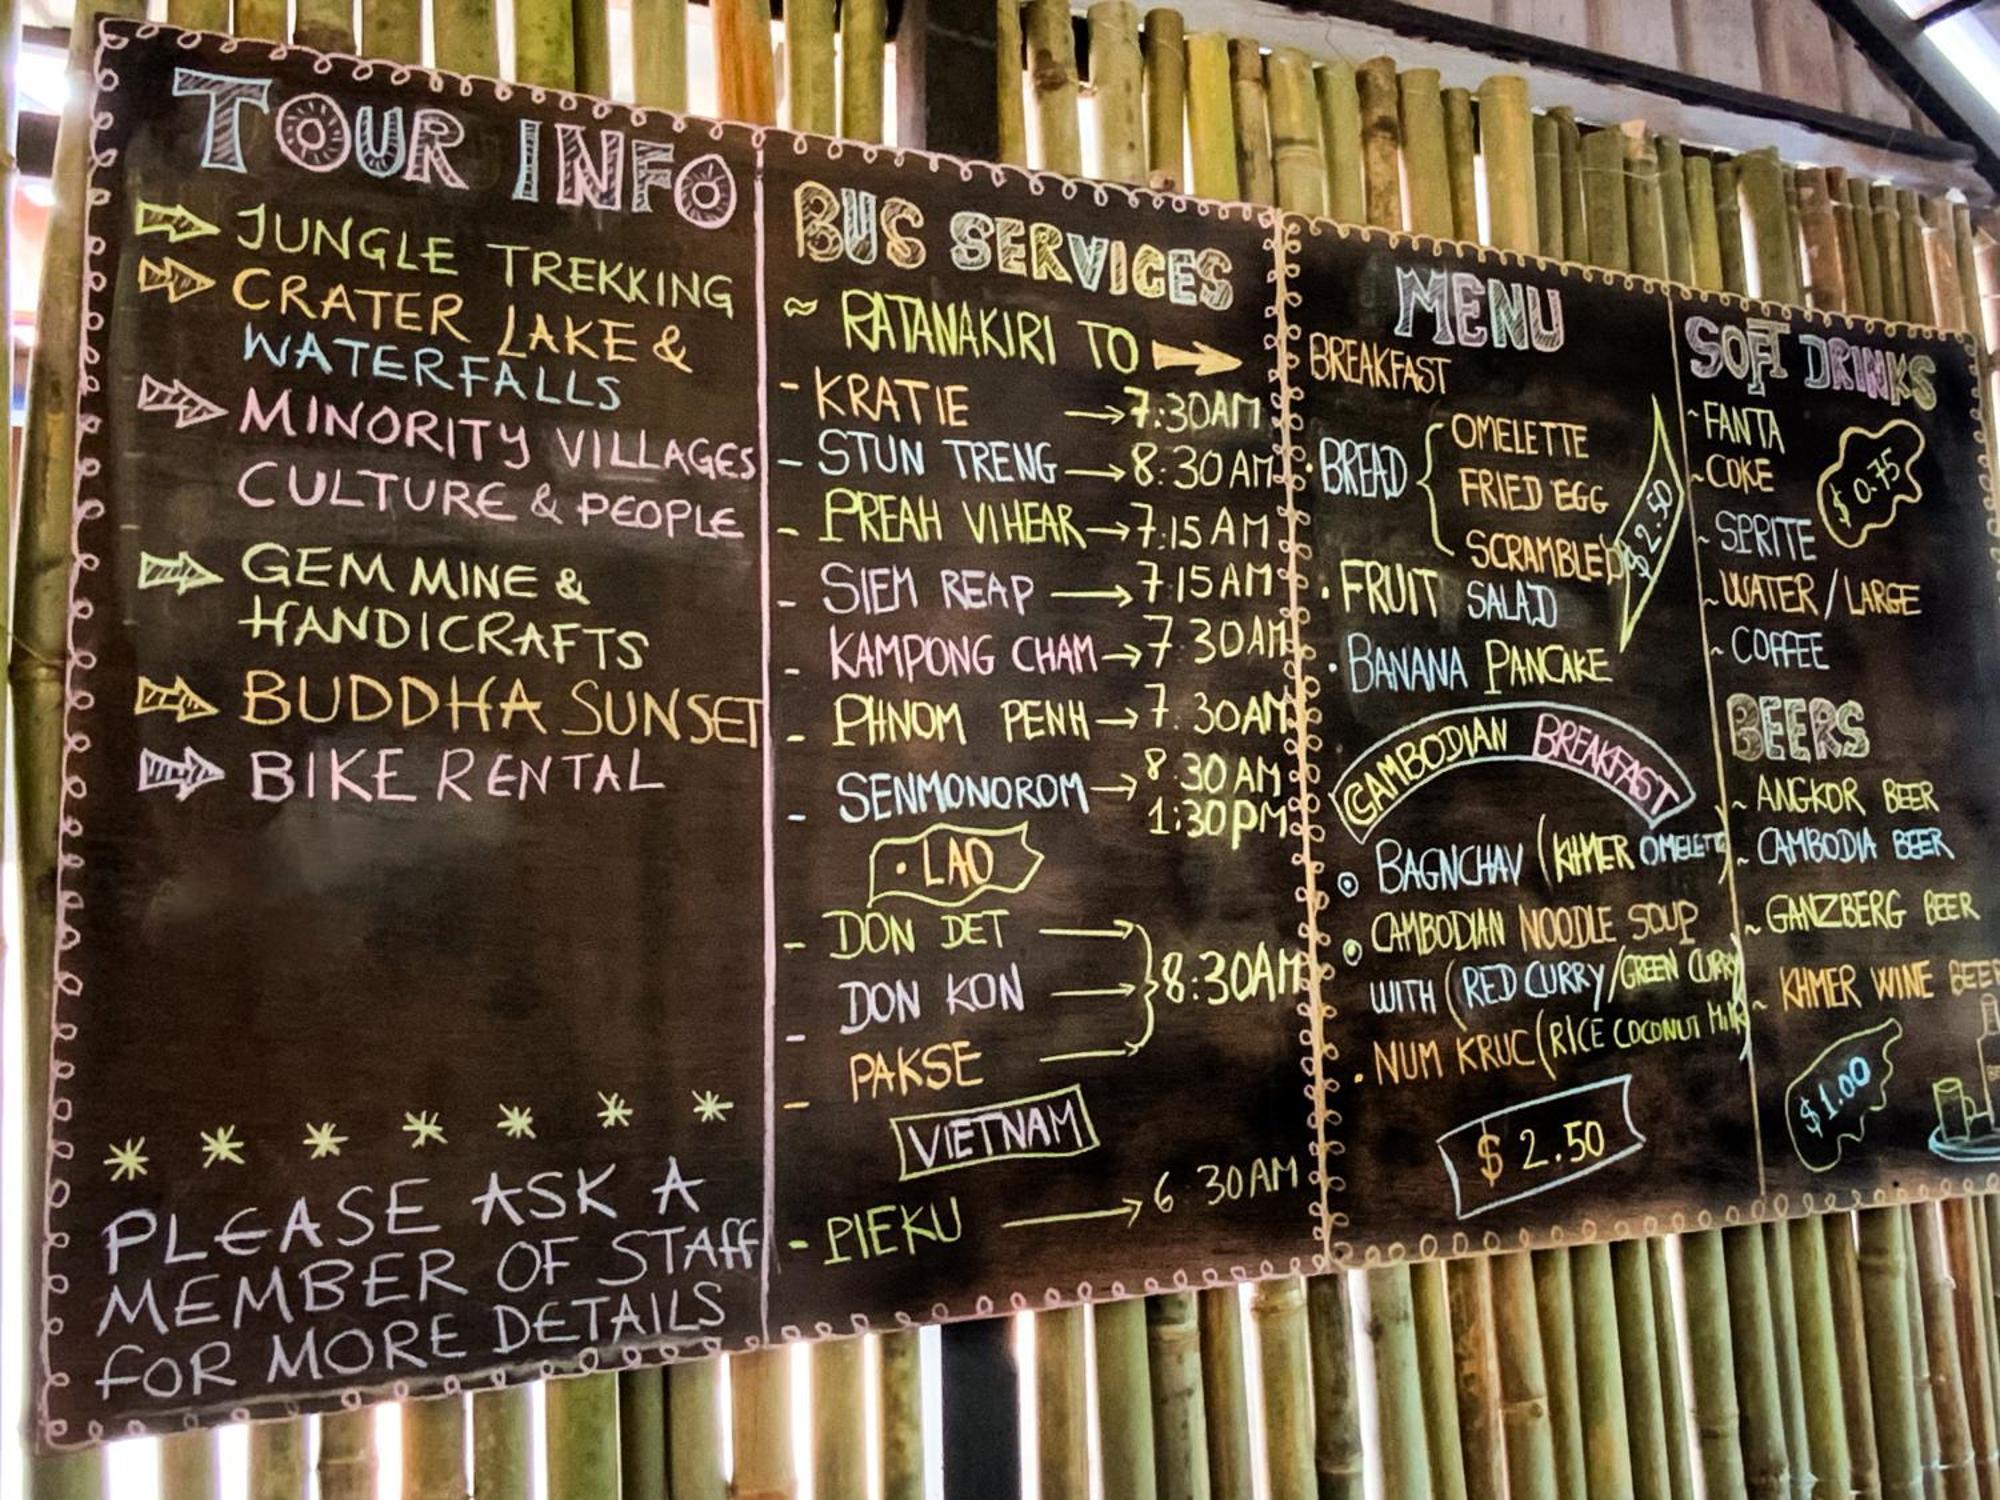 TOUR INFO
JUNGLE TREKKING
CRATER LAKE &
WATERFALLS
MINORITY VILLAGES
CULTURE & PEOPLE
GEM MINE &
HANDICRAFTS
BUDDHA SUNSET
BIKE RENTAL
PLEASE ASK A
MEMBER OF STAFF
FOR MORE DETAILS
BUS SERVICES
~ RATANAKIRI TO →
- KRATIE → 7:30AM
- STUN TRENG → 8:30AM
- PREAH VIHEAR → 7:15AM
- SIEM REAP → 7 15AM
- KAMPONG CHAM → 7 30AM
- PHNOM PENH → 7.30AM
- SENMONOROM → 8.30AM
1:30pm
• LAO
- DON DET →
- DON KON → 8:30AM
- PAKSE →
VIETNAM
- PIEKU → 6.30AM
MENU
BREAKFAST
• BREAD { OMELETTE
FRIED EGG
SCRAMBLE'D
$2.50
• FRUIT SALAD
• BANANA PANCAKE
CAMBODIAN BREAKFAST
BAGNCHAV (KHMER OMELETTE)
CAMBODIAN NOODLE SOUP
WITH (RED CURRY/GREEN CURRY)
• NUM KRUC (RICE COCONUT Milk)
$ 2.50
SOFT DRINKS
~ FANTA
~ COKE
$ 0.75
~ SPRITE
~ WATER / LARGE
~ COFFEE
BEERS
~ ANGKOR BEER
~ CAMBODIA BEER
~ GANZBERG BEER
~ KHMER WINE BEER
$1.00